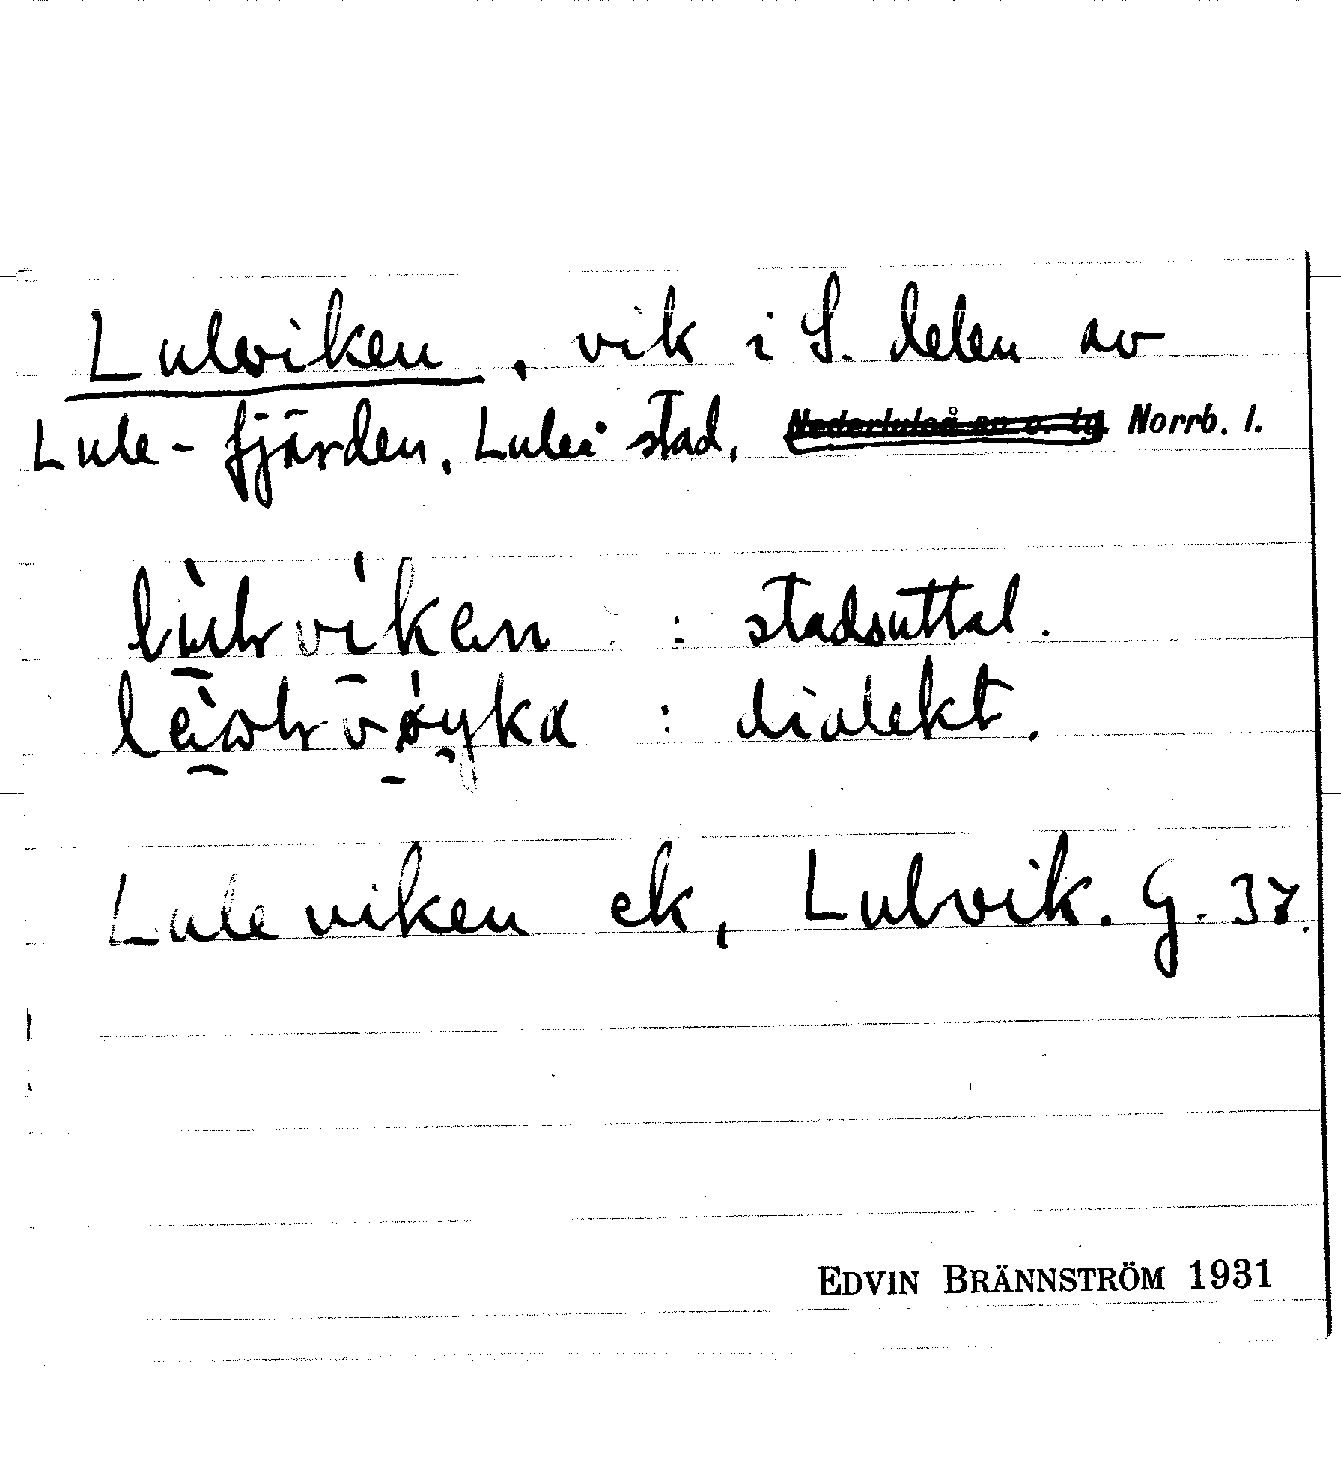 Lulviken, vik i S. delen av
Lule-fjärden, Luleå stad, Nederluleå sn o. tg Norrb. l.
: stadsuttal.
: dialekt.
Luleviken ek, Lulvik. G. 38.
EDVIN BRÄNNSTRÖM 1931